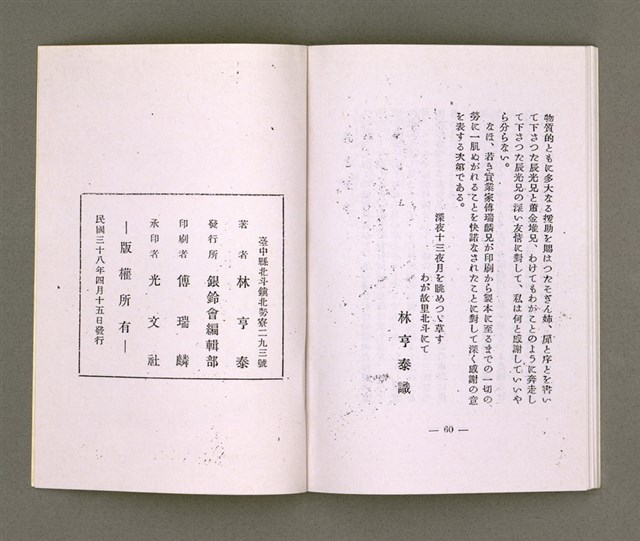 物質的ともに多大なる援助を賜はつたそぎん姉、扉と序とを書い
て下さつた辰光兄と蕭金堆兄、わけてもわがことのように奔走し
て下さつた辰光兄の深い友情に對して、私は何と感謝していいや
ら分らない。
なほ、若き實業家傅瑞麟兄が印刷から製本に至るまでの一切の
勞に一肌ぬがれることを快諾なされたことに對して深く感謝の意
を表する次第である。
深夜十三夜月を眺めつゝ草す
わが故里北斗にて
林亨泰識
— 60 —
臺中縣北斗鎮北勢寮二九三號
著者 林亨泰
發行所 銀鈴會編輯部
印刷者 傅瑞麟
承印者 光文社
—版權所有—
民國三十八年四月十五日發行